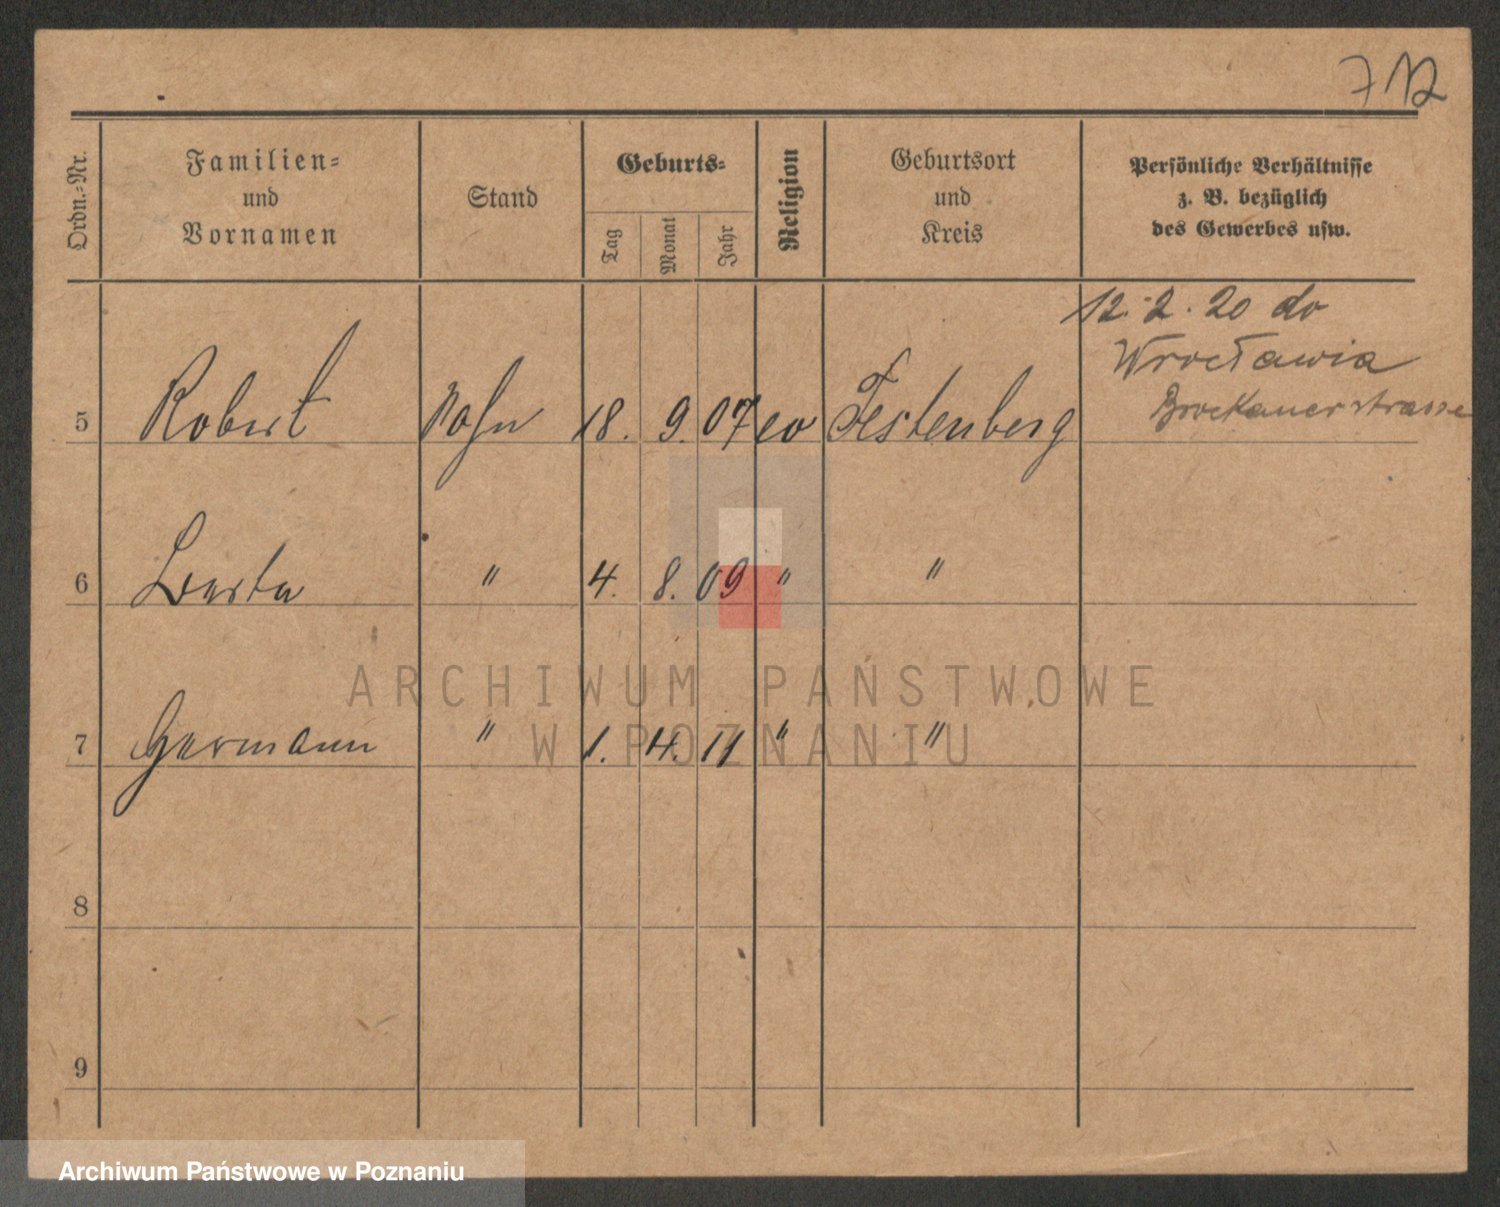 712
Ordn.-Nr.
Familien-
und
Vornamen
Stand
Geburts-
Tag
Monat
Jahr
Religion
Geburtsort
und
Kreis
Persönliche Verhältnisse
z. B. bezüglich
des Gewerbes usw.
12. 2. 20 do
Wrocławia
Brockauerstrasse
5 Robert Sohn 18. 9. 07 ev Festenberg
6 " 4. 8. 09 " "
7 Hermann " 1. 4. 11 " "
8
9
ARCHIWUM PAŃSTWOWE
W POZNANIU
Archiwum Państwowe w Poznaniu